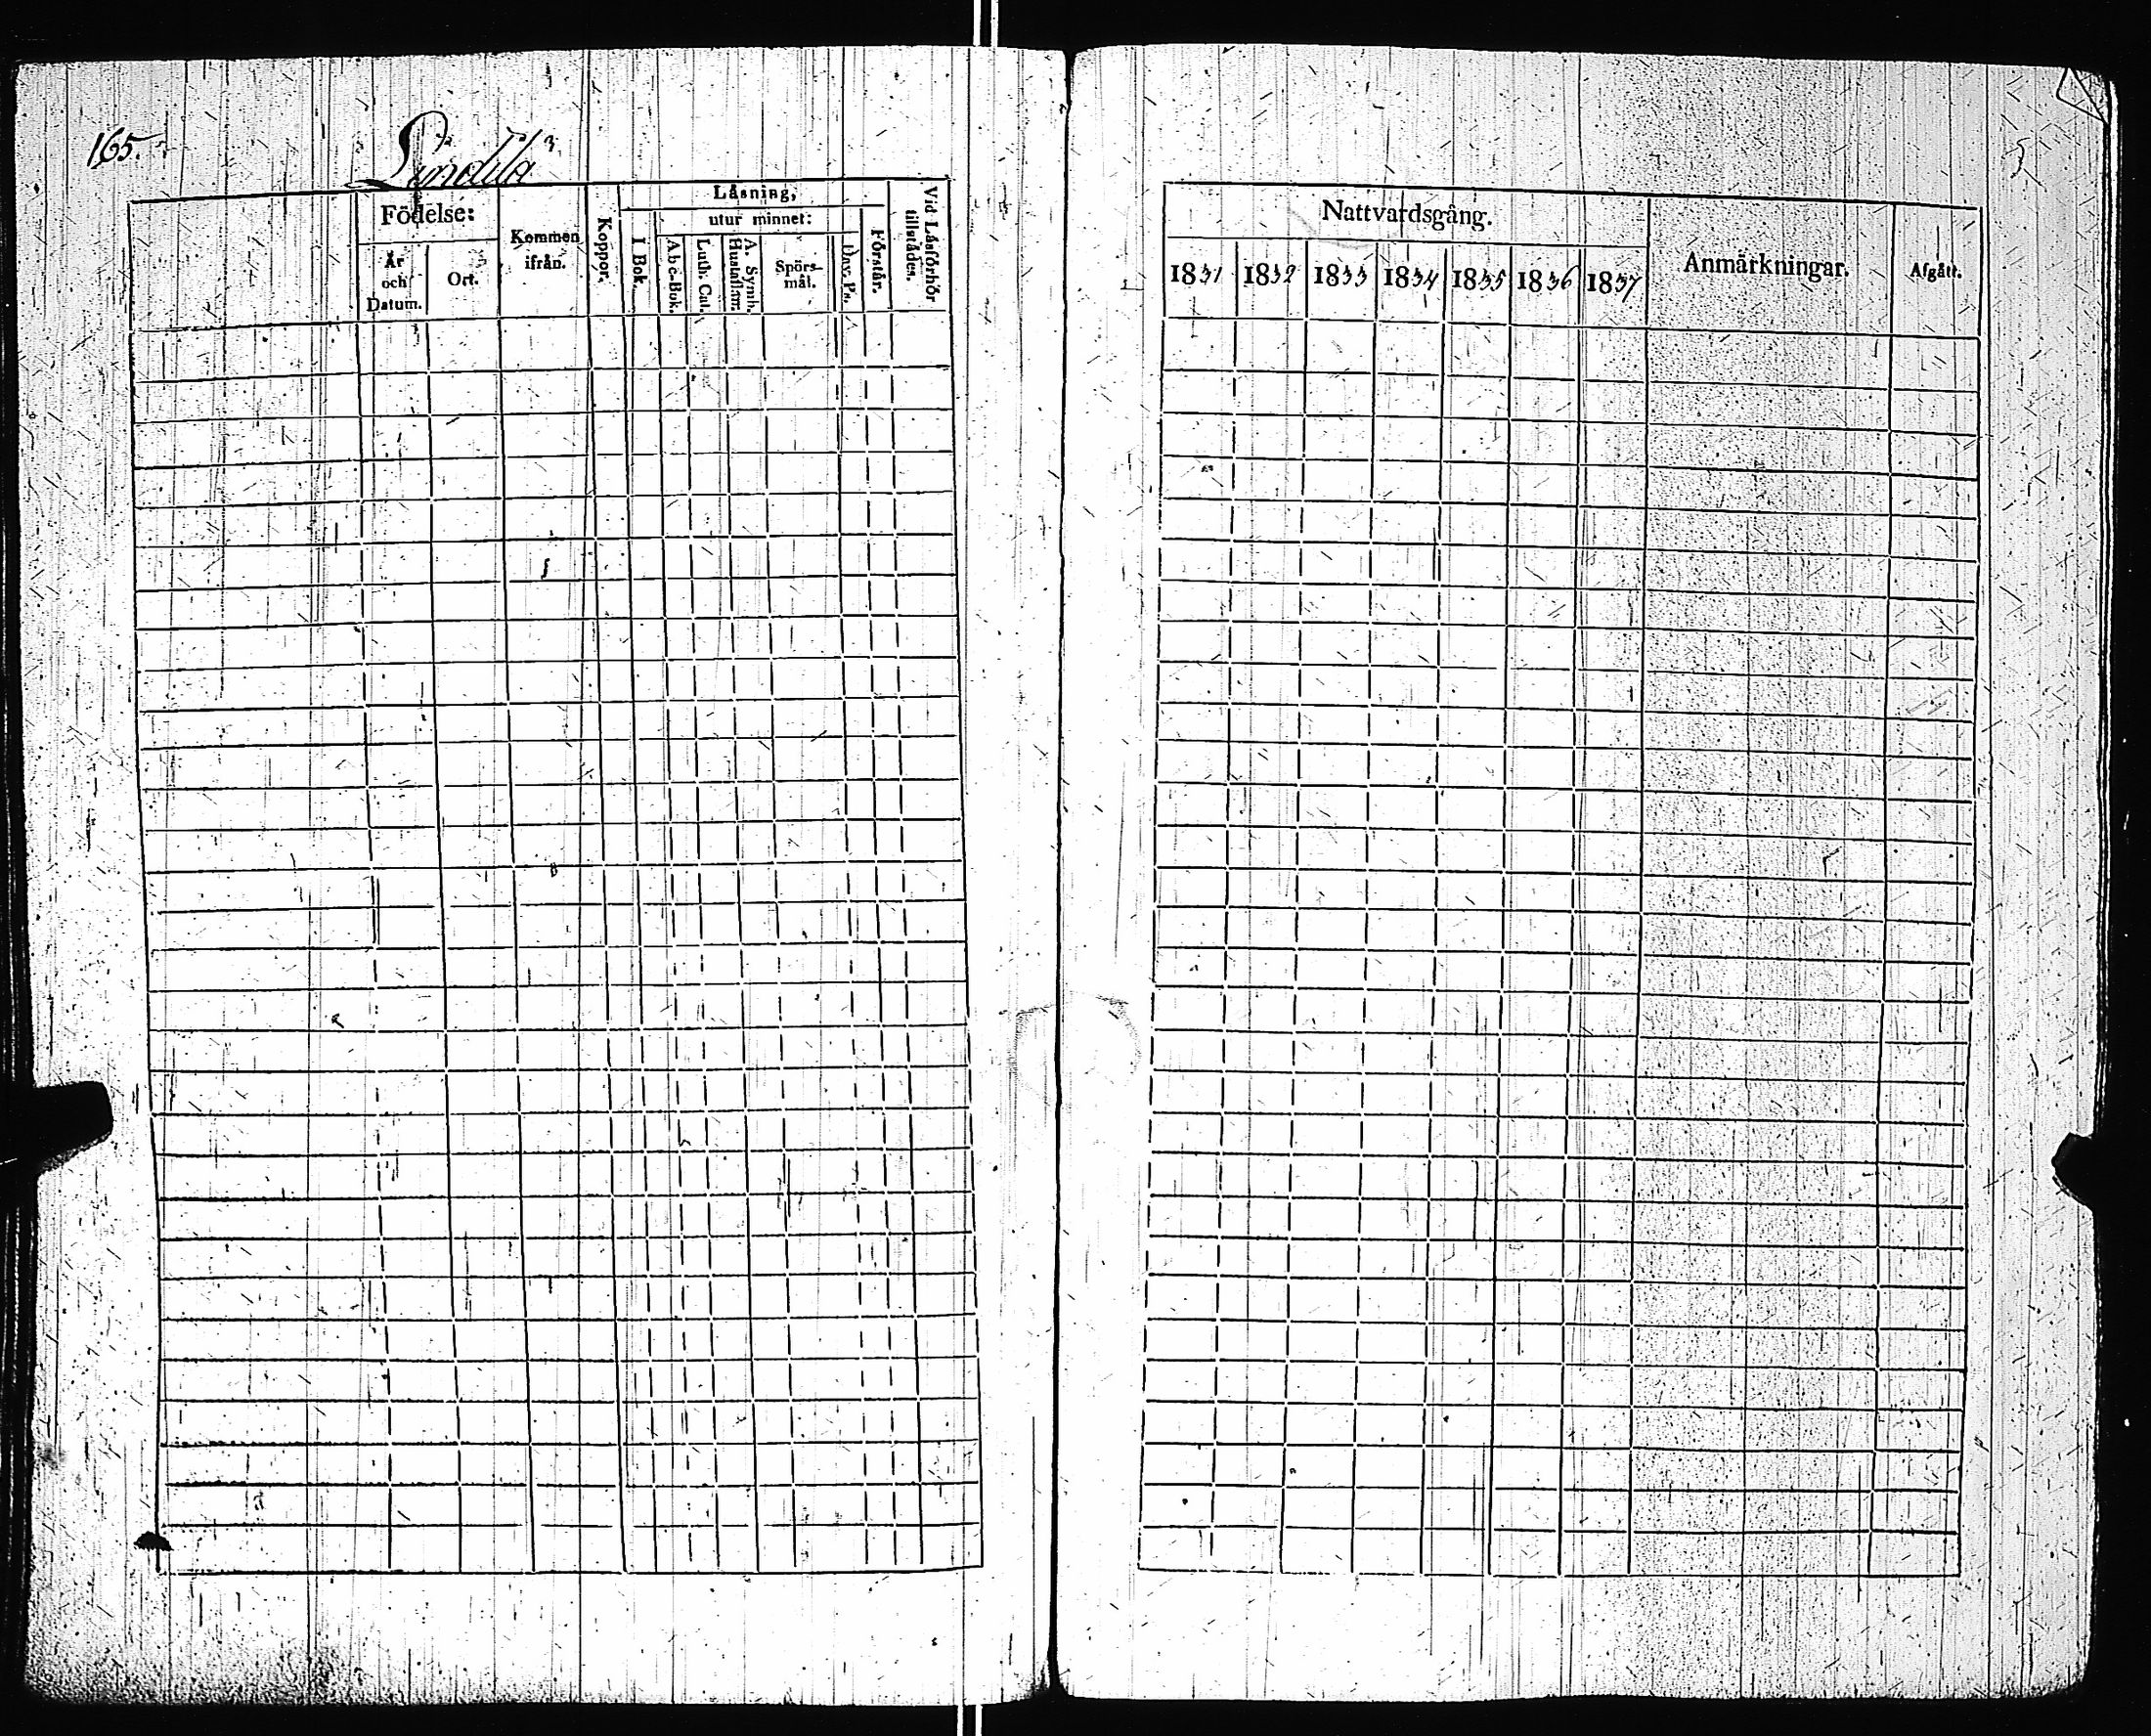 165.
Födelse:
År och Datum.
Ort.
Kommen ifrån.
Koppor.
Läsning,
I Bok.
utur minnet:
Abc-Bok.
Luth. Cat.
A. Symb. Hustaflam.
Spörs-
mål.
Dav. Ps.
Förstår.
Vid Läsförhör
tillstädes.
Nattvardsgång.
1831 1832 1833 1834 1835 1836 1837
Anmärkningar.
Afgått.